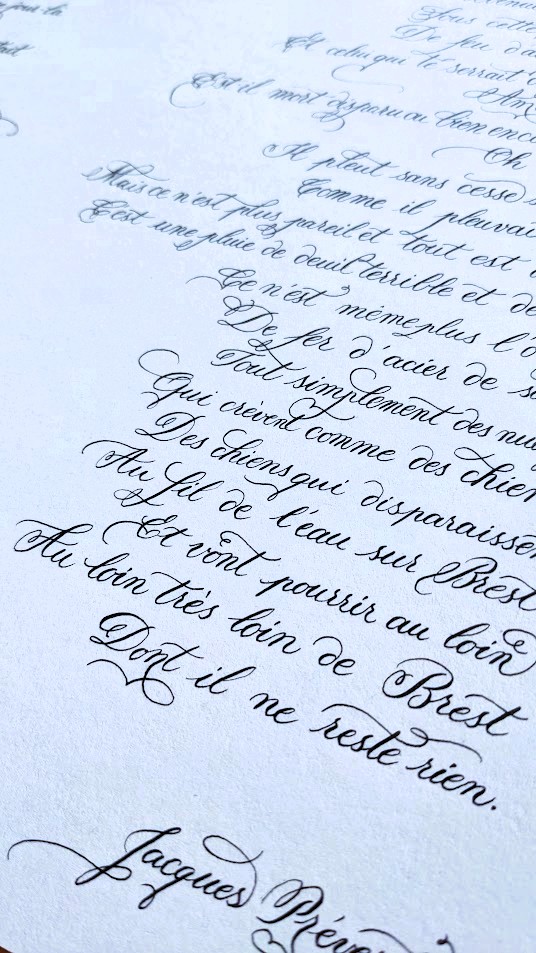 Sous cette
De feu d'a
Et celui qui te serrait
Am
Est il mort disparu ou bien enco
Oh
Il pleut sans cesse s
Comme il pleuvai
Mais ce n'est plus pareil et tout est
C'est une pluie de deuil terrible et dé
Ce n'est même plus l'o
De fer d'acier de s
Tout simplement des nu
Qui crèvent comme des chien
Des chiens qui disparaissen
Au fil de l'eau sur Brest
Et vont pourrir au loin
Au loin très loin de Brest
Dont il ne reste rien.
Jacques Préve